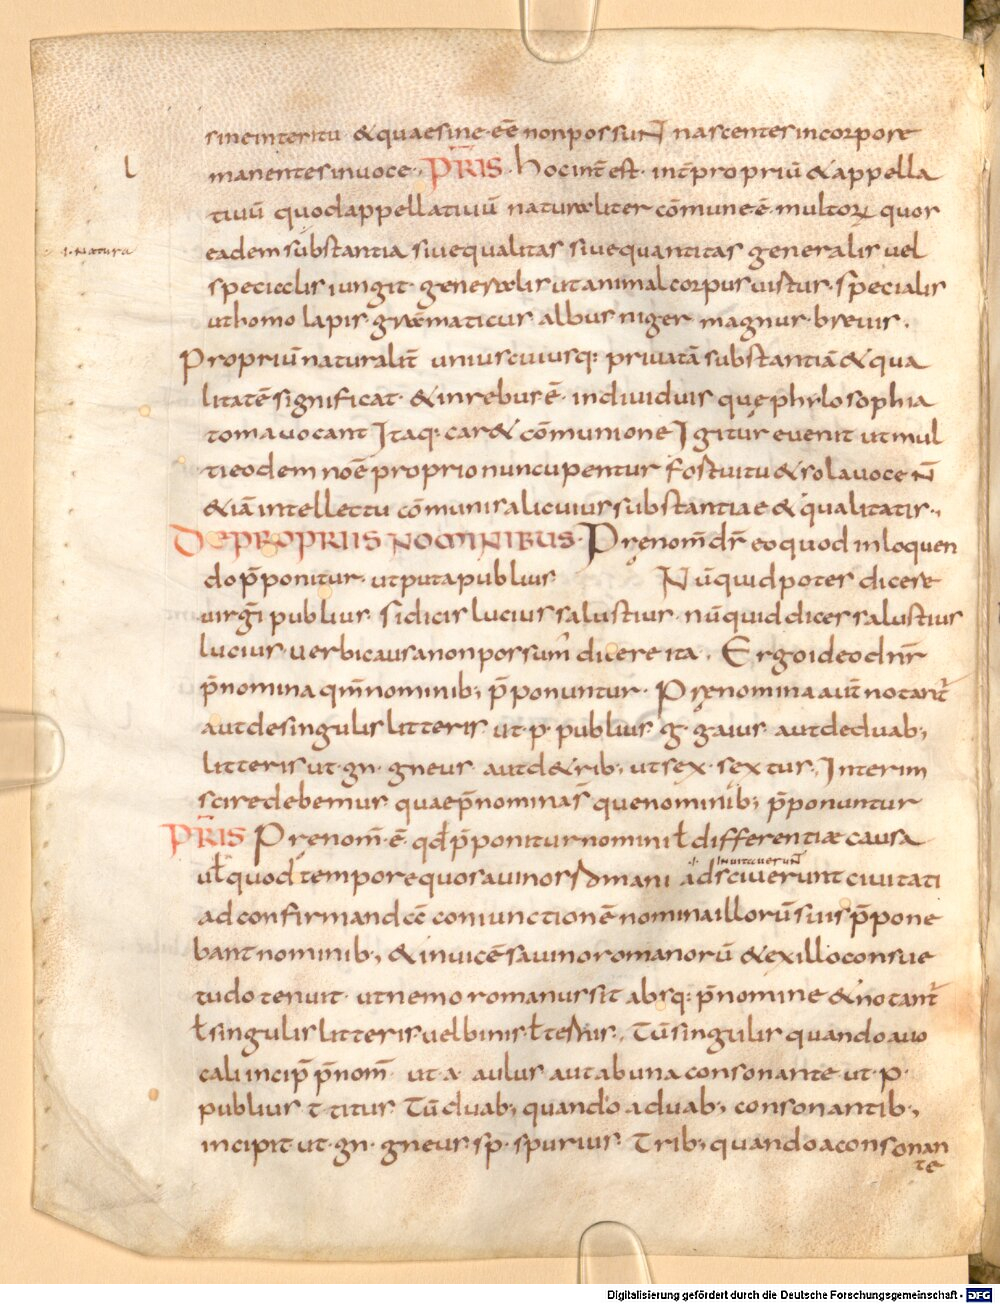 sineinteritu · &quaesine · eē nonpossuNT nascentesincorpore
manentesinuoce ·, PR̄IS · hocint̄ est · int̄propriū &appella
tiuū quodappellatiuū naturaliter cōmune ē multoꝝ quor
eadem substantia siuequalitas siuequantitas generalis uel
.i. natura
specialis iungit · generalis utanimalcorpusuirtus · specialis
uthomo lapis · gramaticus albus niger magnus · breuis ·
Propriū naturalit̄ uniuscuiusq: priuatā substantiā &qua
litatē significat · &inrebus ē · indiuiduis que phylosophia
tomauocant Itaq: car& cōmunione Igitur euenit utmul
tieodem noē proprio nuncupentur fortuitu & solauoce N̄
&iā intellectu cōmunis alicuius substantiae & qualitatis ·,
DE PROPRIIS NOMINIBUS · Prenom̄ dr̄ eo quod inloquen
do p̄ponitur · utputapublius Nūquid potes dicere
uirgī publius · sidicis lucius salustius · nūquid dicessalustius
lucius · uerbicausa non possum̄ dicere ita · Ergo ideo dn̄r
p̄nomina qm̄nominib; p̄ponuntur · Prenomina aut̄ notant̄
autdesingulis litteris ut · p · publius · g · gaius · autdeduab;
litteris ut · gn · gneus · autd&rib; utsex · sextus ·, Interim
scire debemus quae p̄nominas̄ quenominib; p̄ponuntur
PR̄IS Prenom̄ · ē · qd̄ p̄ponitur nomini ł differentiæ causa
.i. inuitauerunt
uł quod tempore quosauinos romani adsciuerunt ciuitati
ad confirmandā coniunctionē nomina illorū suis p̄pone
bant nominib; &inuicē sauino romanorū &exillo consue
tudo tenuit · utnemo romanus sit absq: p̄nomine &notant̄
ł singulis litteris uelbinis · ł ternis ·, Tū singulis quando auo
cali incip̄ p̄nom̄ ut · a · aulus autabuna consonante ut · p ·
publius · t · titus Tū duab; quando aduab; consonantib;,
incipit · ut · gn · gneus · sp · spurius · Trib; quando aconsonan
te
Digitalisierung gefördert durch die Deutsche Forschungsgemeinschaft - DFG